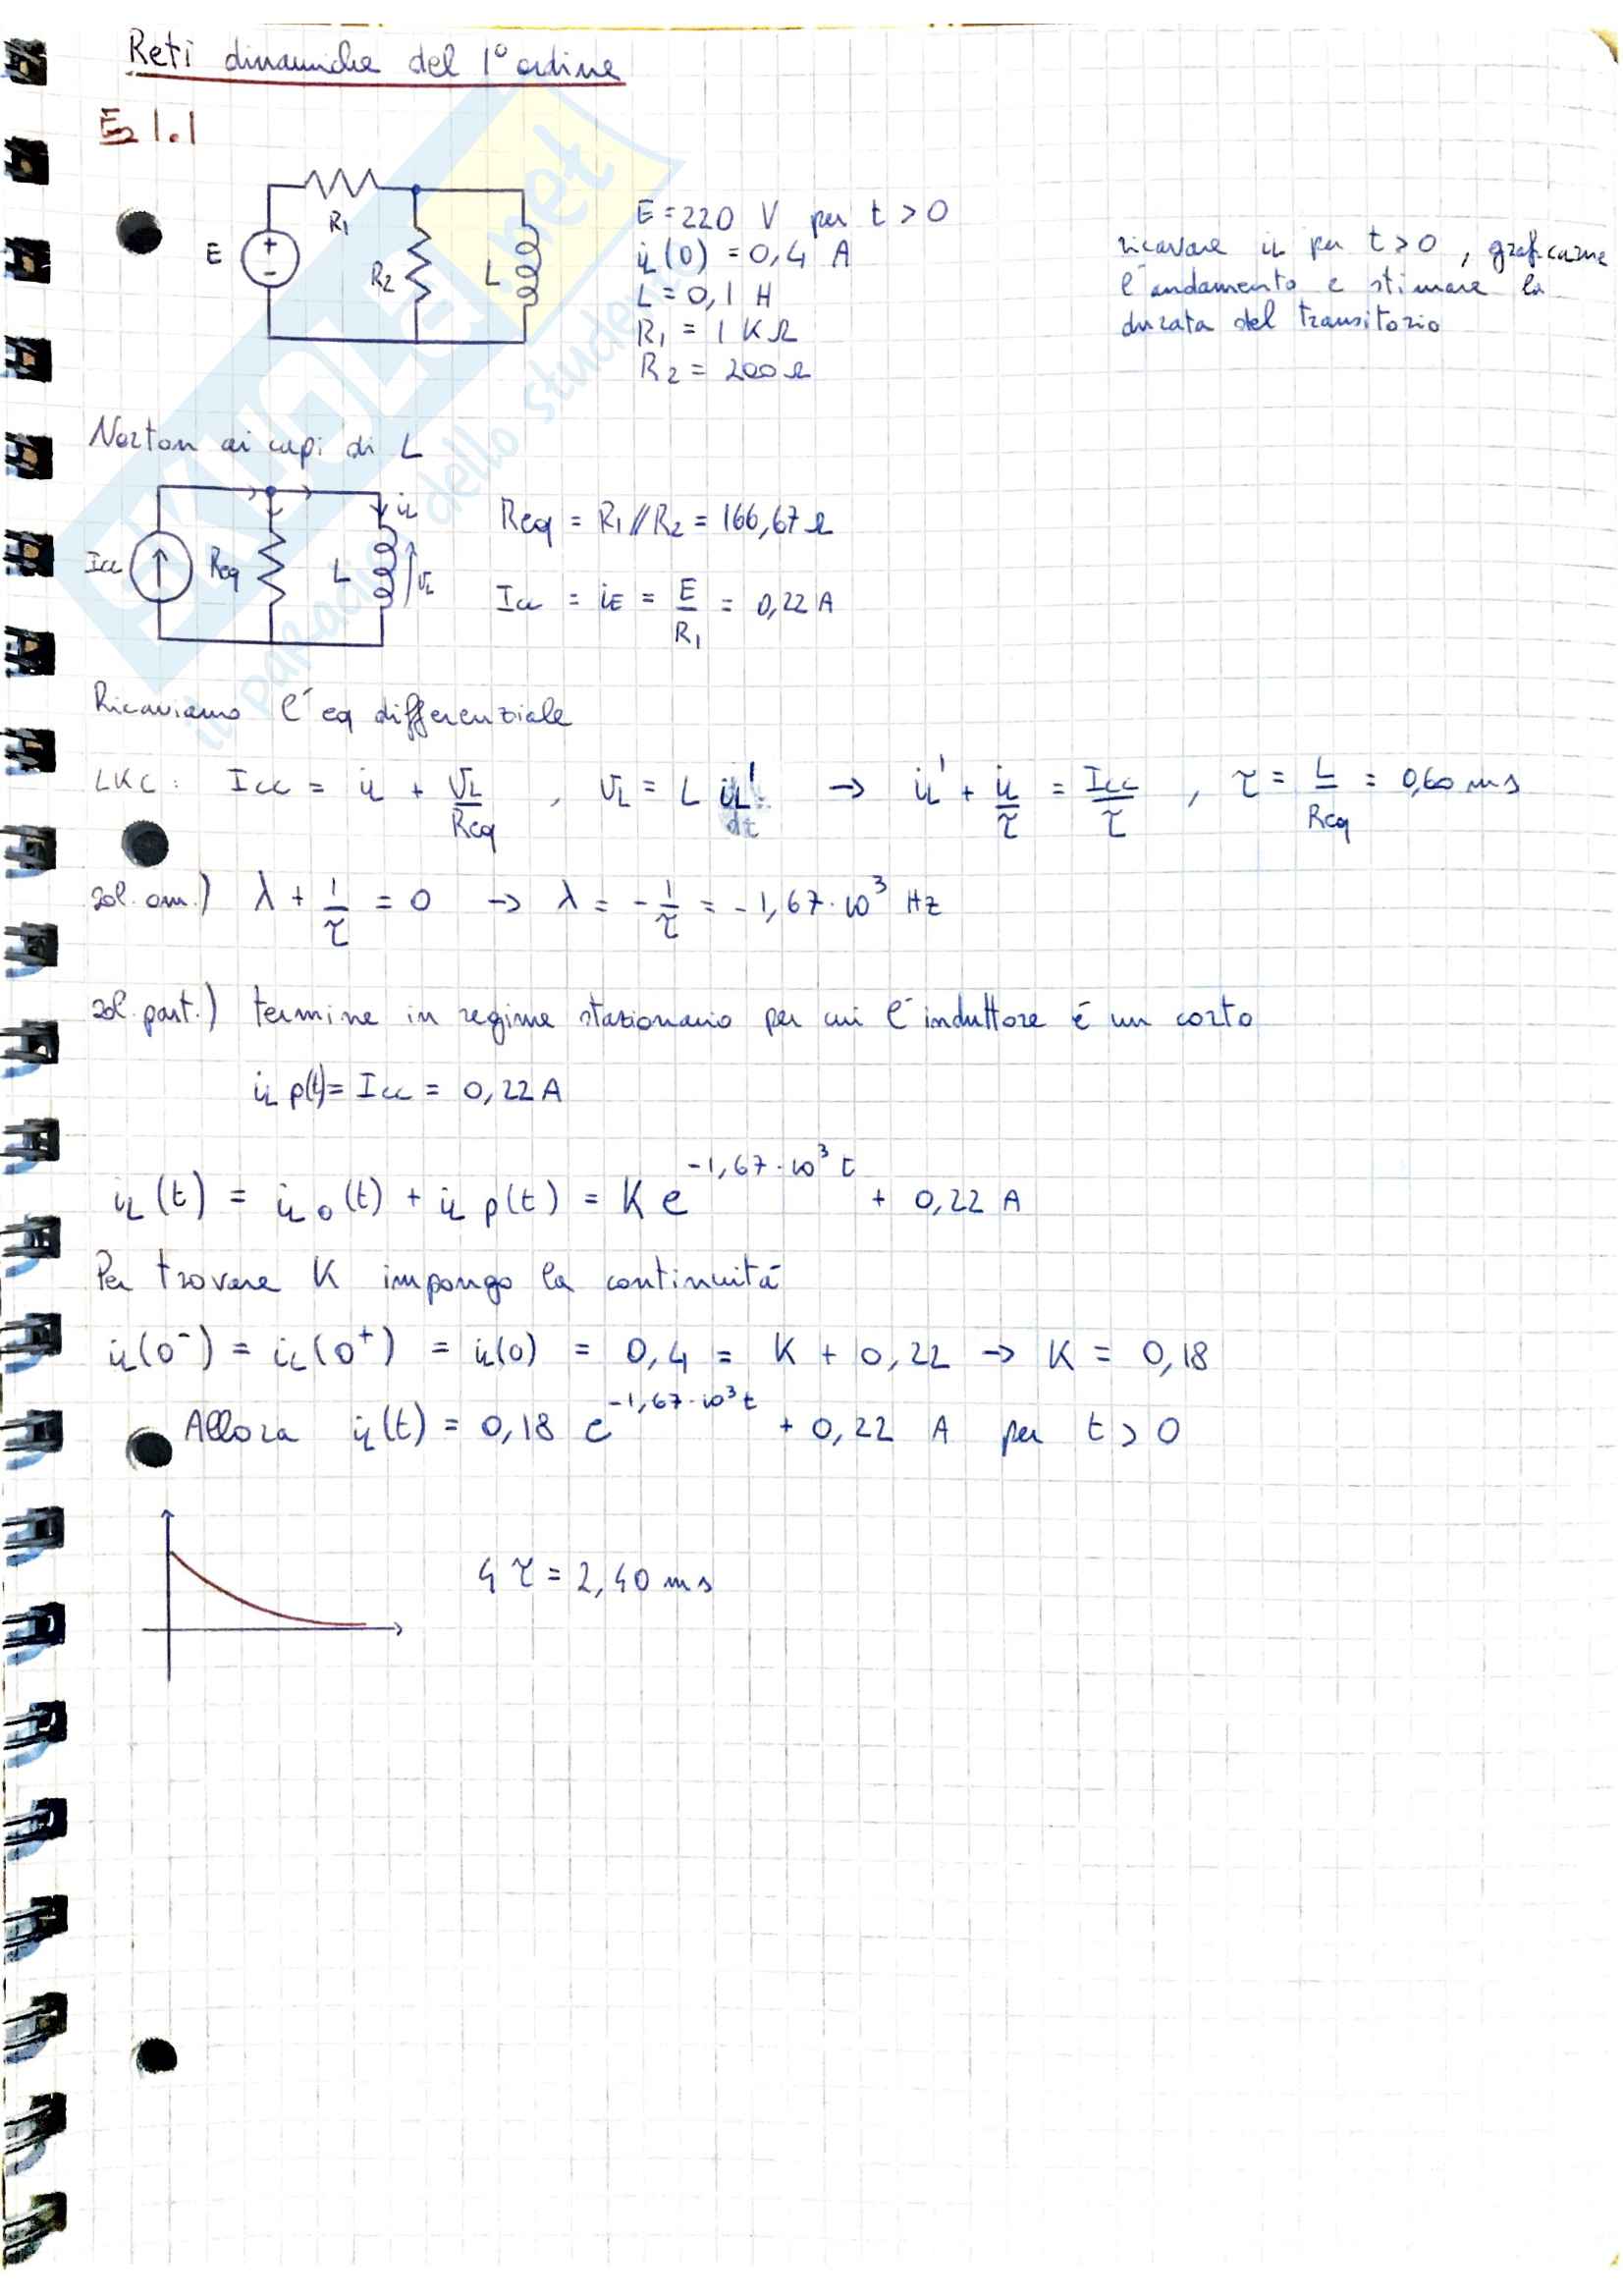 Reti dinamiche del 1° ordine
Es 1.1
E = 220 V per t > 0
iL(0) = 0,4 A
L = 0,1 H
R1 = 1 KΩ
R2 = 200 Ω
ricavare iL per t > 0, graficarne
l'andamento e stimare la
durata del transitorio
E
+
-
R1
R2
L
Norton ai capi di L
Icc
Req
L
iL
vL
Req = R1 // R2 = 166,67 Ω
Icc = iE = E/R1 = 0,22 A
Ricaviamo l'eq differenziale
LKC: Icc = iL + vL/Req , vL = L iL' → iL' + iL/τ = Icc/τ , τ = L/Req = 0,60 ms
sol. om.) λ + 1/τ = 0 → λ = -1/τ = -1,67·10³ Hz
sol. part.) termine in regime stazionario per cui l'induttore é un corto
iL p(t) = Icc = 0,22 A
iL(t) = iL o(t) + iL p(t) = K e^-1,67·10³ t + 0,22 A
Per trovare K impongo la continuitá
iL(0⁻) = iL(0⁺) = iL(0) = 0,4 = K + 0,22 → K = 0,18
Allora iL(t) = 0,18 e^-1,67·10³ t + 0,22 A per t > 0
4 τ = 2,40 ms
SKUOLA.net
il paradiso dello studente